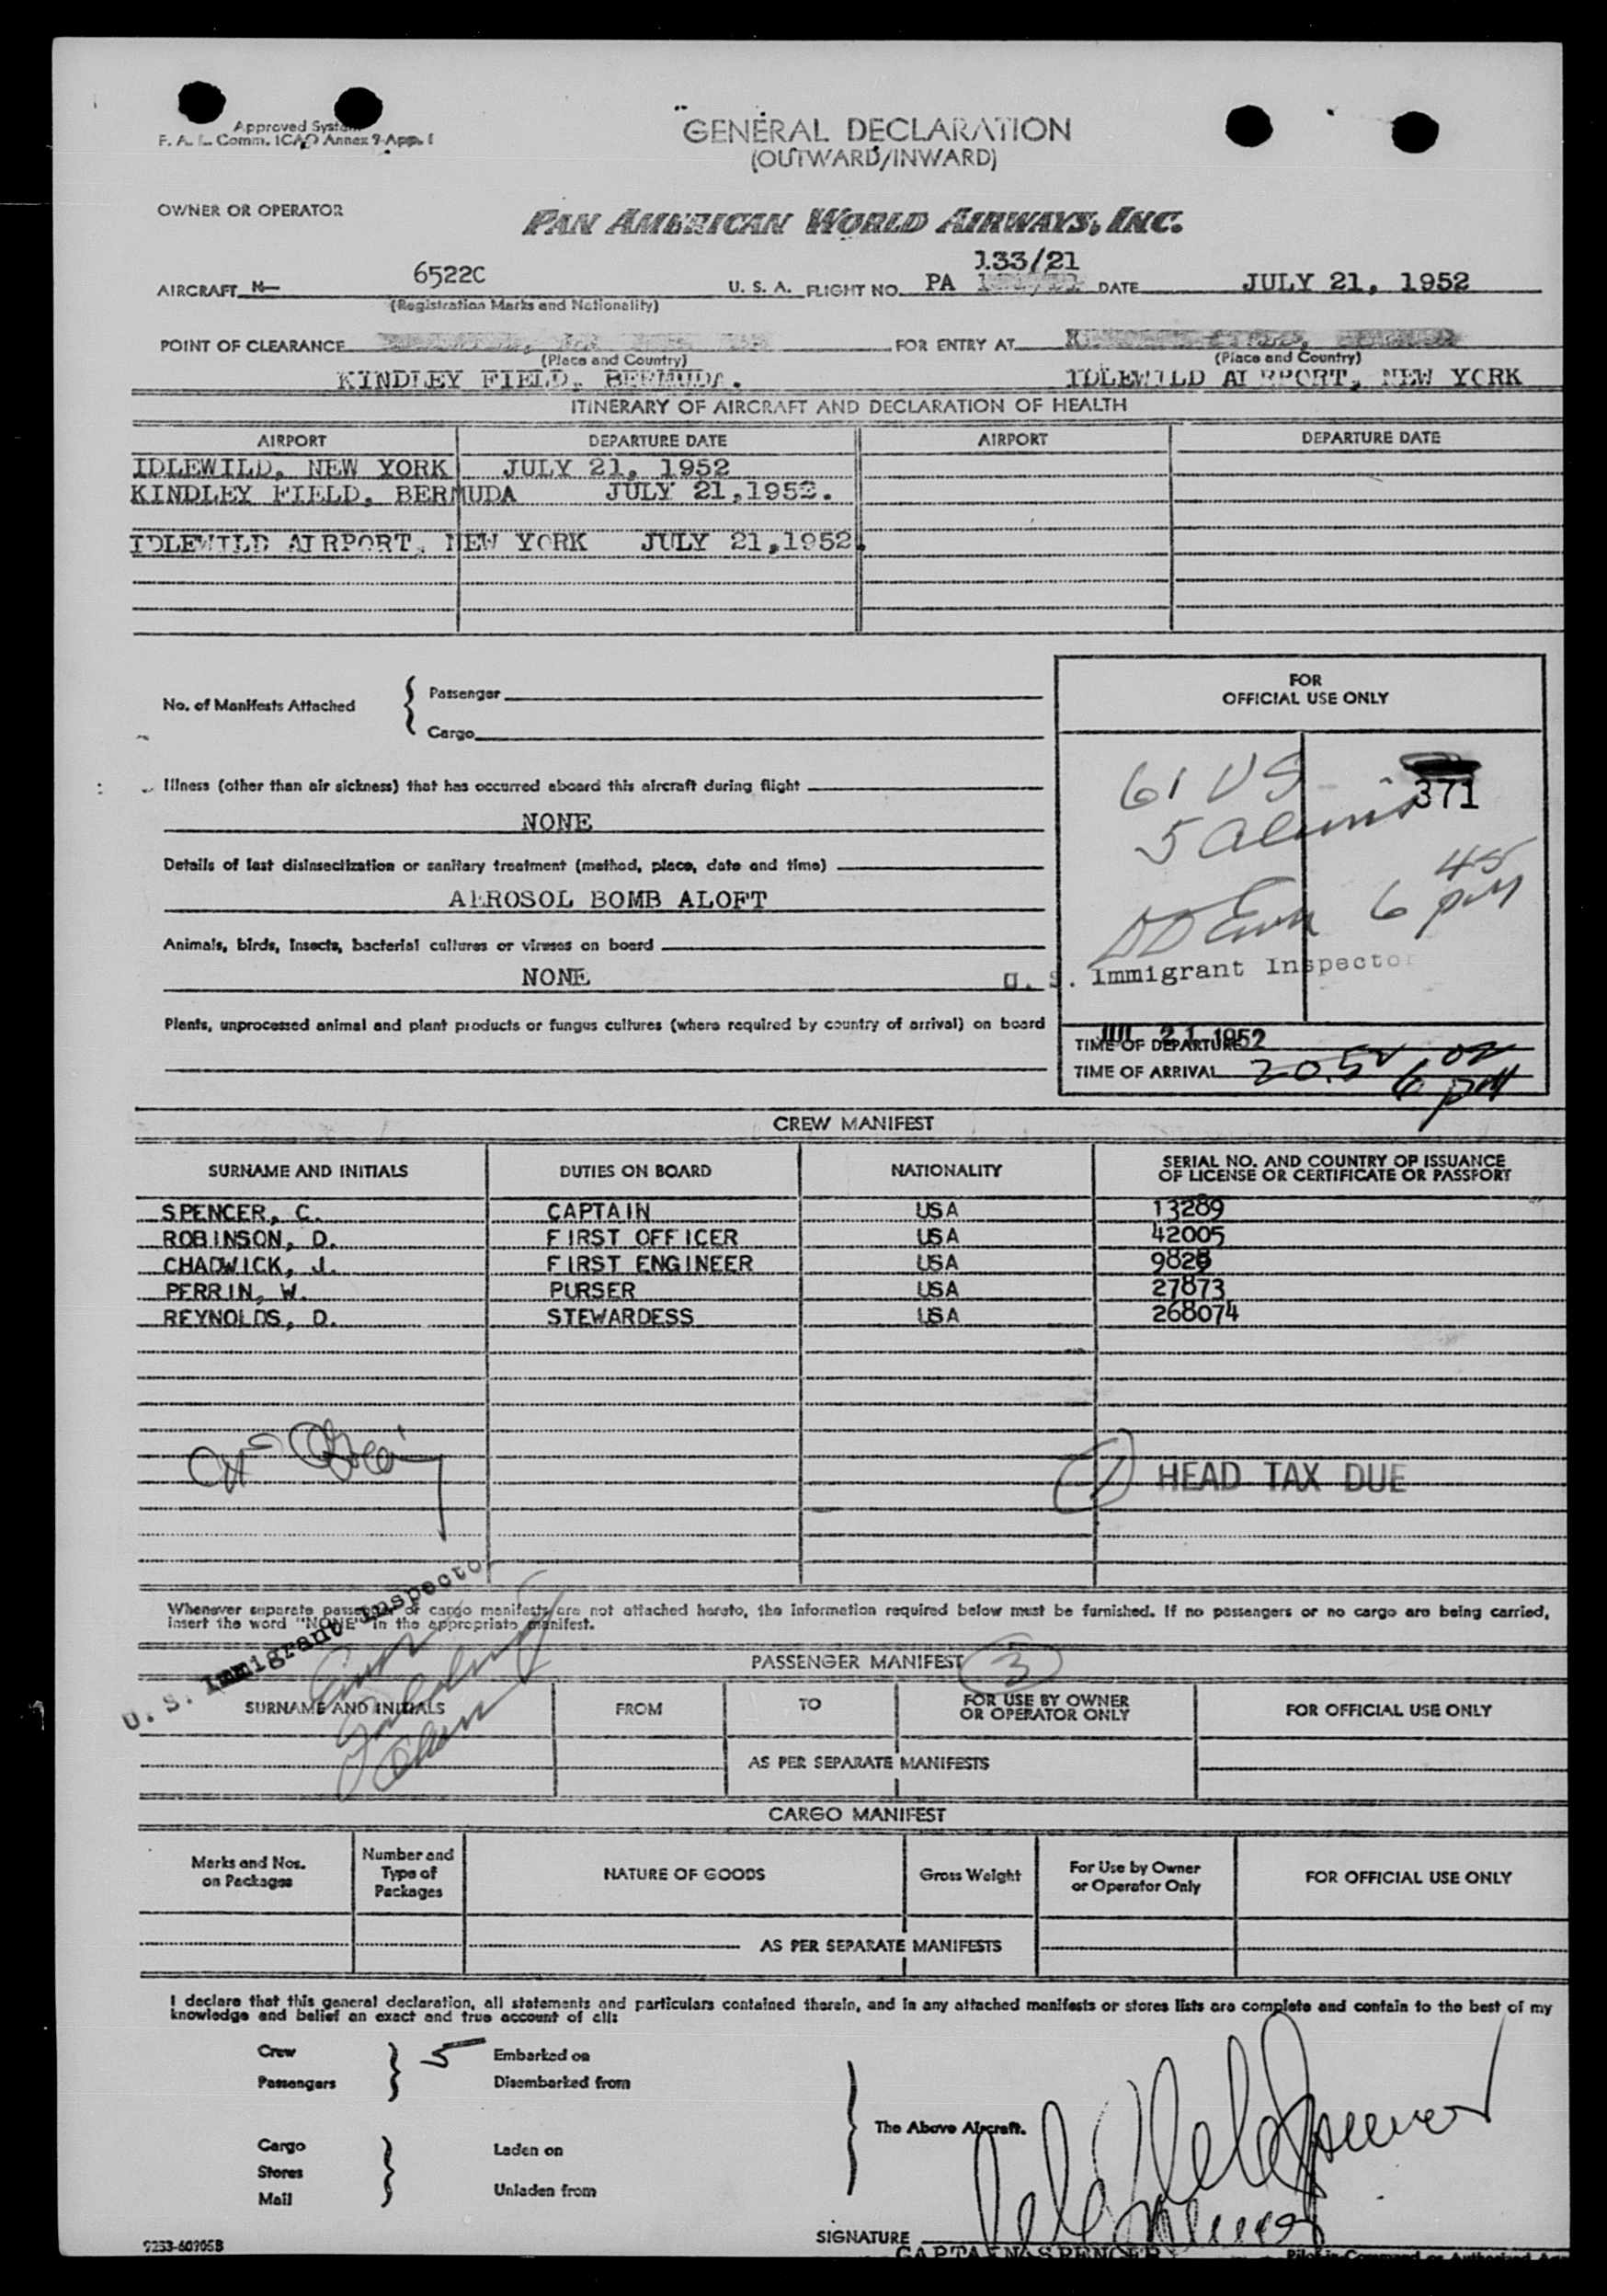 Approved System
F. A. L. Comm. ICAO Annex 9-App. 1
GENERAL DECLARATION
(OUTWARD/INWARD)
OWNER OR OPERATOR
PAN AMERICAN WORLD AIRWAYS, INC.
133/21
AIRCRAFT N 6522C U. S. A. FLIGHT NO. PA DATE JULY 21, 1952
(Registration Marks and Nationality)
POINT OF CLEARANCE FOR ENTRY AT
(Place and Country) (Place and Country)
KINDLEY FIELD, BERMUDA. IDLEWILD AIRPORT, NEW YORK
ITINERARY OF AIRCRAFT AND DECLARATION OF HEALTH
AIRPORT DEPARTURE DATE AIRPORT DEPARTURE DATE
IDLEWILD, NEW YORK JULY 21, 1952
KINDLEY FIELD, BERMUDA JULY 21,1952.
IDLEWILD AIRPORT, NEW YORK JULY 21,1952.
No. of Manifests Attached
Passenger
Cargo
FOR
OFFICIAL USE ONLY
61 US
371
5 aliens
45
6 PM
U. S. Immigrant Inspector
Illness (other than air sickness) that has occurred aboard this aircraft during flight
NONE
Details of last disinsectization or sanitary treatment (method, place, date and time)
AEROSOL BOMB ALOFT
Animals, birds, insects, bacterial cultures or viruses on board
NONE
Plants, unprocessed animal and plant products or fungus cultures (where required by country of arrival) on board
JUL 21 1952
TIME OF DEPARTURE
TIME OF ARRIVAL 20.52 6:02 PM
CREW MANIFEST
SURNAME AND INITIALS DUTIES ON BOARD NATIONALITY SERIAL NO. AND COUNTRY OF ISSUANCE
OF LICENSE OR CERTIFICATE OR PASSPORT
SPENCER, C. CAPTAIN USA 13289
ROBINSON, D. FIRST OFFICER USA 42005
CHADWICK, J. FIRST ENGINEER USA 9828
PERRIN, W. PURSER USA 27873
REYNOLDS, D. STEWARDESS USA 268074
1 HEAD TAX DUE
U. S. Immigrant Inspector
Whenever separate passenger or cargo manifests are not attached hereto, the information required below must be furnished. If no passengers or no cargo are being carried,
insert the word "NONE" in the appropriate manifest.
PASSENGER MANIFEST 3
SURNAME AND INITIALS FROM TO FOR USE BY OWNER
OR OPERATOR ONLY FOR OFFICIAL USE ONLY
AS PER SEPARATE MANIFESTS
CARGO MANIFEST
Marks and Nos.
on Packages
Number and
Type of
Packages
NATURE OF GOODS
Gross Weight
For Use by Owner
or Operator Only
FOR OFFICIAL USE ONLY
AS PER SEPARATE MANIFESTS
I declare that this general declaration, all statements and particulars contained therein, and in any attached manifests or stores lists are complete and contain to the best of my
knowledge and belief an exact and true account of all:
Crew 5 Embarked on
Passengers Disembarked from
The Above Aircraft.
Cargo Laden on
Stores
Mail Unladen from
SIGNATURE
CAPTAIN SPENCER
9253-60905B